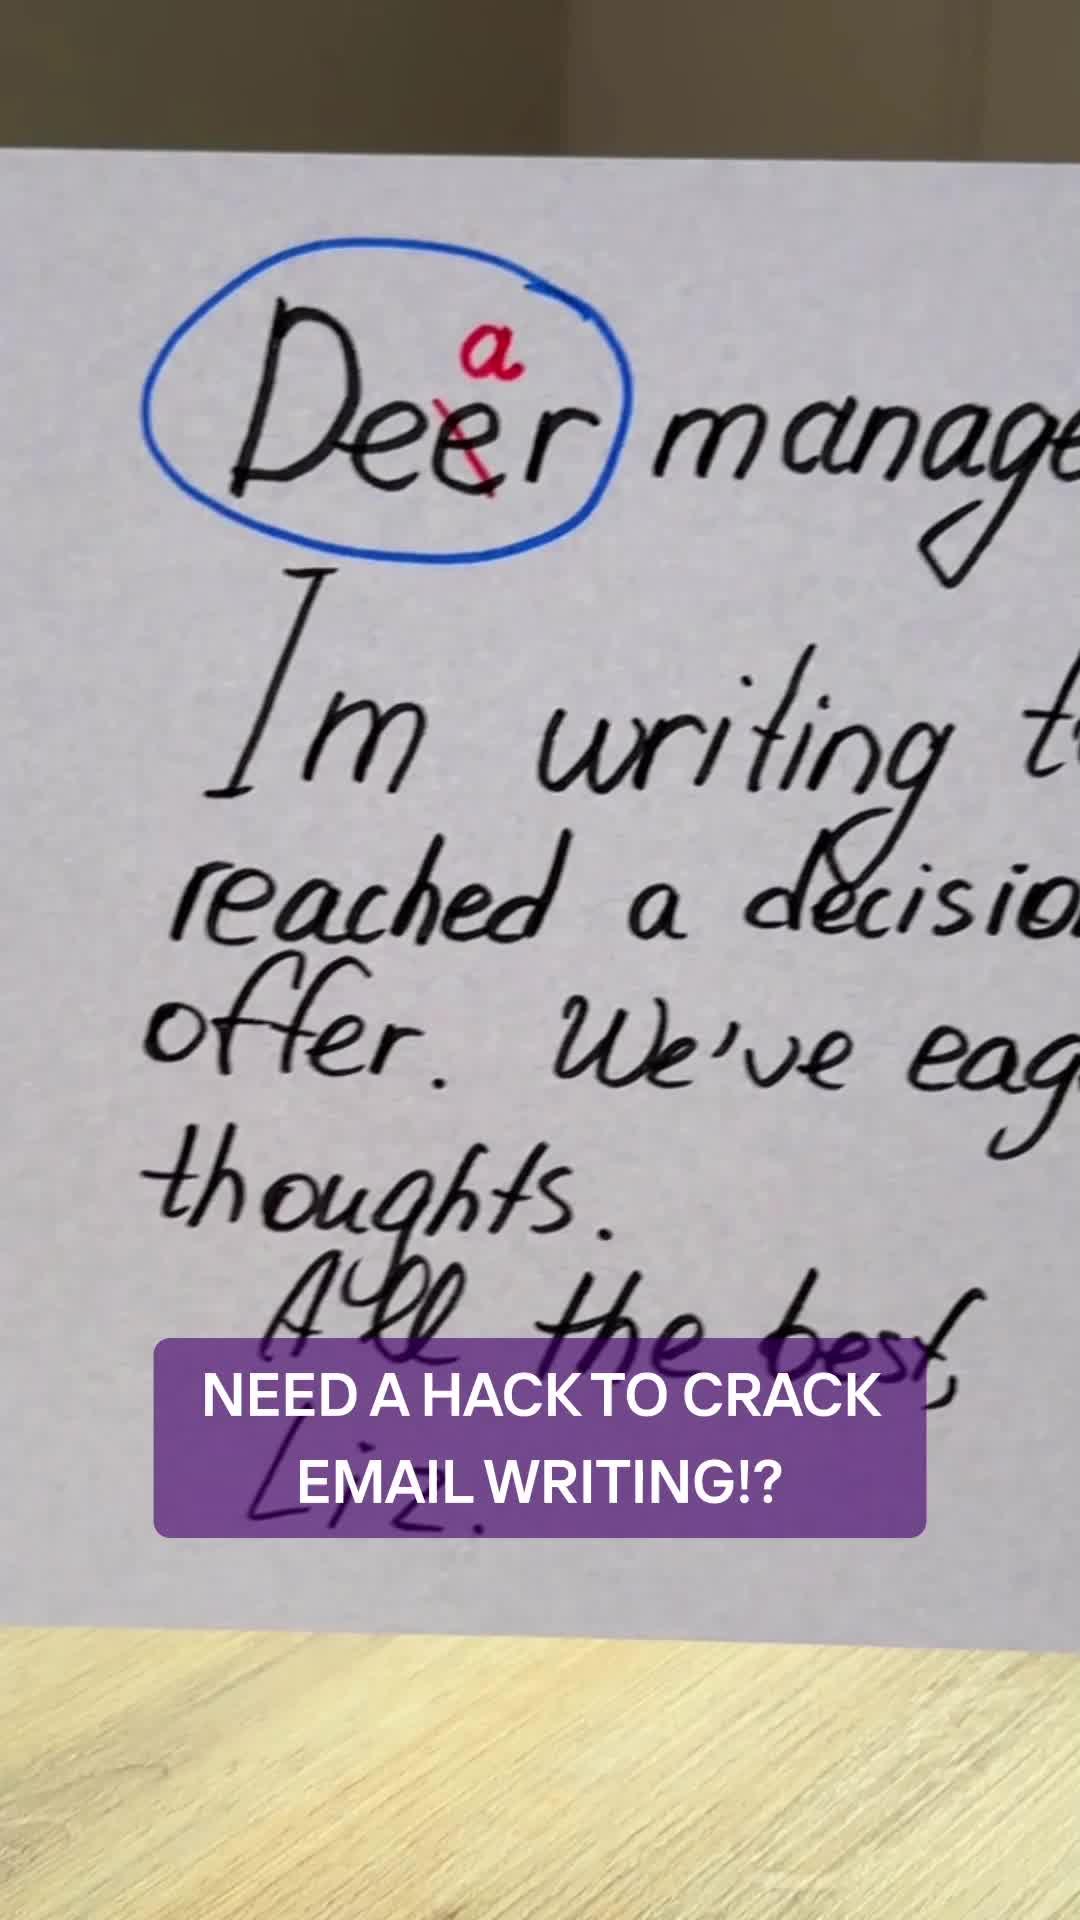 a
Deer manage
Im writing t
reached a decision
offer. We've eag
thoughts.
All the best,
NEED A HACK TO CRACK
EMAIL WRITING!?
Liz.